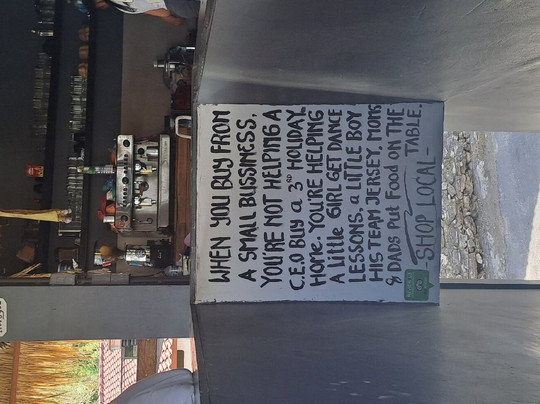 WHEN YOU BUY FROM
A SMALL BUSSINESS,
YOU'RE NOT HELPING A
C.E.O BUY a 3RD HOLIDAY
HOME. YOU'RE HELPING
A little GIRL GET DANCE
LESSONS. a LITTLE BOY
HIS TEAM JERSEY, MOMS
& DADS PUT FOOD ON THE
TABLE.
-SHOP LOCAL-